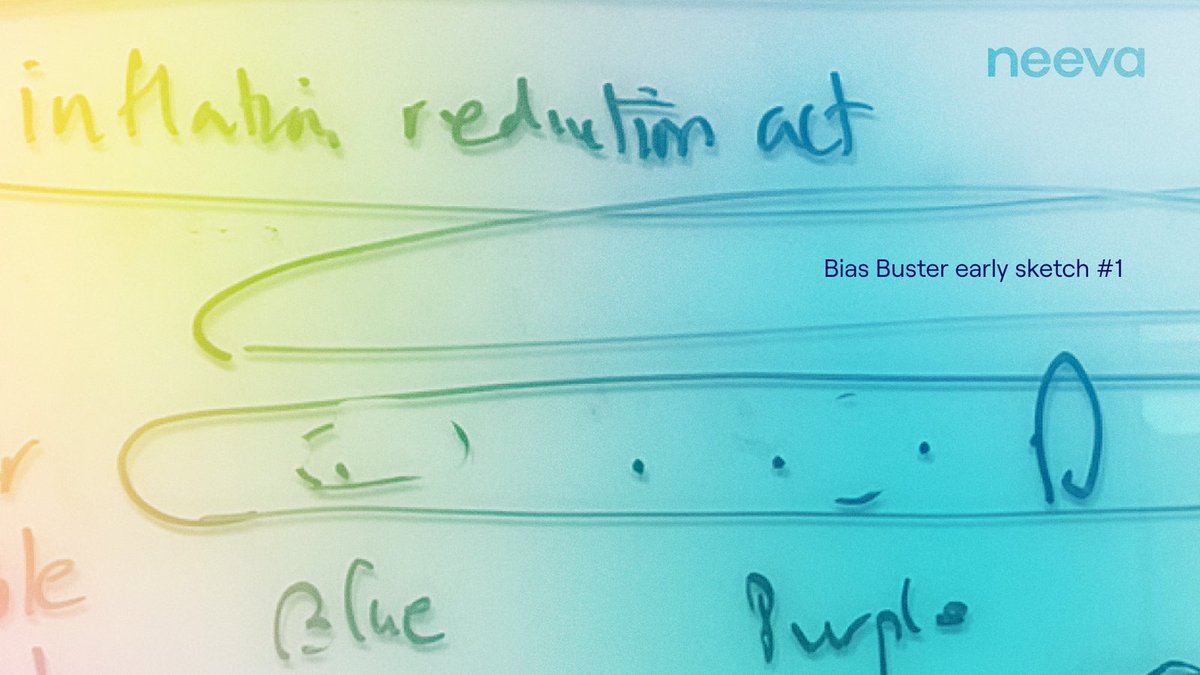 neeva
inflation reduction act
Bias Buster early sketch #1
Blue Purple